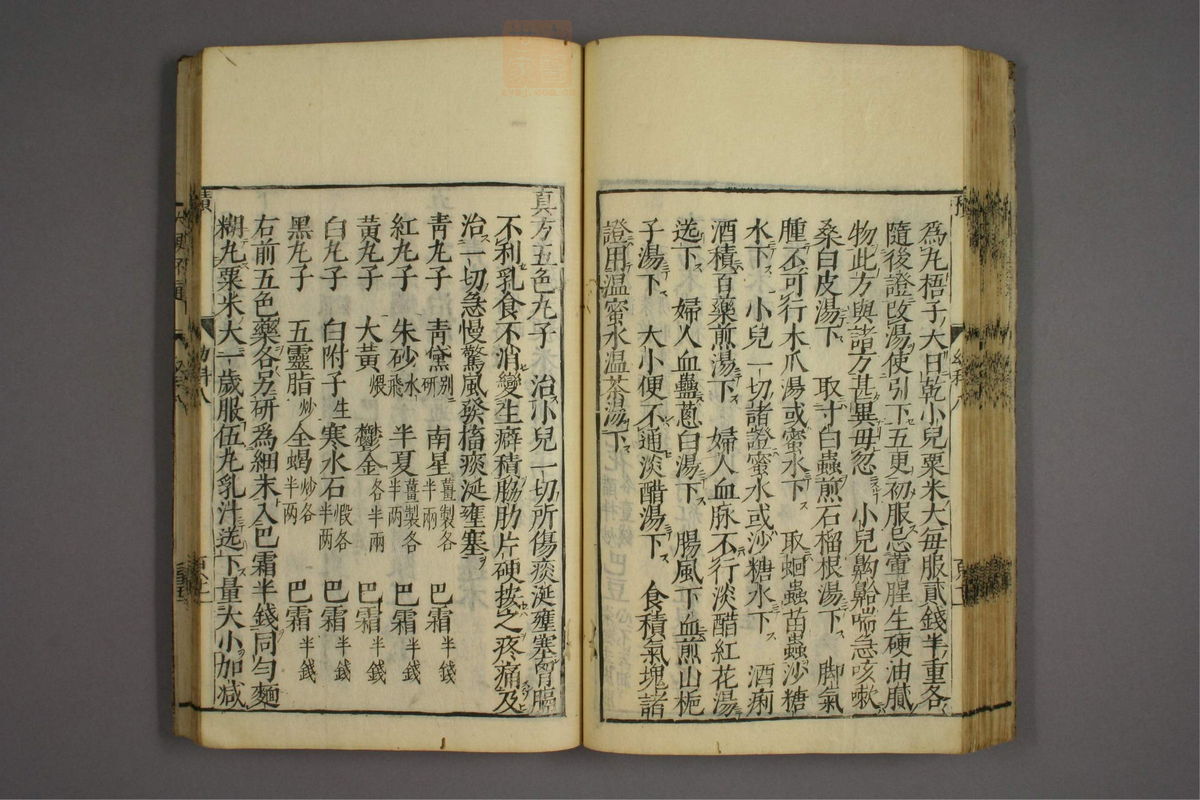 為丸梧子大日乾小兒粟米大每服貳錢半重各
隨後證改湯使引下五更初服忌葷腥生硬油膩
物此方與諸方甚異毋忽　小兒齁䶎喘急咳嗽
桑白皮湯下　取寸白蟲煎石榴根湯下　脚氣
腫不可行木爪湯或蜜水下　取蛔蟲苗蟲沙糖
水下　小兒一切諸證蜜水或沙糖水下　酒痢
酒積百藥煎湯下　婦人血脉不行淡醋紅花湯
送下　婦人血蠱蔥白湯下　腸風下血煎山梔
子湯下　大小便不通淡醋湯下　食積氣塊諸
證用溫蜜水溫茶湯下
真方五色丸子　治小兒一切所傷痰涎壅塞胷膈
不利乳食不消變生癖積脇肋片硬按之疼痛及
治一切急慢驚風發搐痰涎壅塞
青丸子　青黛別研　南星薑製各半兩　巴霜半錢
紅丸子　朱砂水飛　半夏薑製各半两　巴霜半錢
黃丸子　大黃煨　鬱金各半兩　巴霜半錢
白丸子　白附子生　寒水石煅各半两　巴霜半錢
黑丸子　五靈脂炒　全蝎炒各半两　巴霜半錢
右前五色藥各另研為細末入巴霜半錢同勻麵
糊丸粟米大一歲服伍丸乳汁送下量大小加减